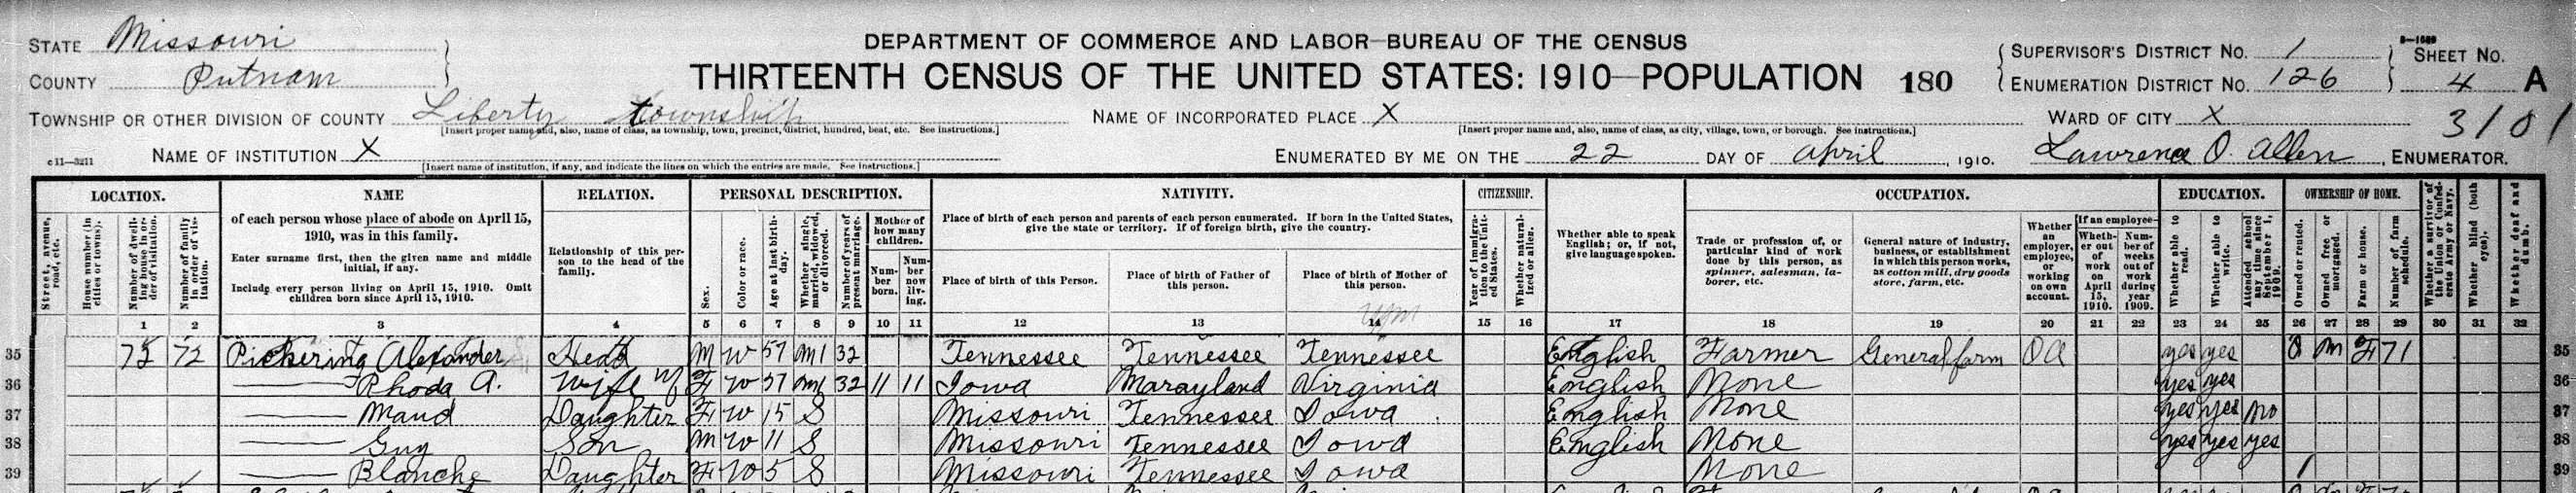 STATE Missouri
COUNTY Putnam
DEPARTMENT OF COMMERCE AND LABOR—BUREAU OF THE CENSUS
THIRTEENTH CENSUS OF THE UNITED STATES: 1910—POPULATION 180
SUPERVISOR'S DISTRICT NO. 1
ENUMERATION DISTRICT NO. 126
SHEET NO.
4 A
TOWNSHIP OR OTHER DIVISION OF COUNTY Liberty township
[Insert proper name and, also, name of class, as township, town, precinct, district, hundred, beat, etc. See instructions.]
NAME OF INCORPORATED PLACE X
[Insert proper name and, also, name of class, as city, village, town, or borough. See instructions.]
WARD OF CITY X
3101
c 11—3211
NAME OF INSTITUTION X
[Insert name of institution, if any, and indicate the lines on which the entries are made. See instructions.]
ENUMERATED BY ME ON THE 22 DAY OF April, 1910. Lawrence O. Allen, ENUMERATOR.
LOCATION.
Street, avenue, road, etc.
House number (in cities or towns).
Number of dwelling house in order of visitation.
Number of family in order of visitation.
NAME
of each person whose place of abode on April 15, 1910, was in this family.
Enter surname first, then the given name and middle initial, if any.
Include every person living on April 15, 1910. Omit children born since April 15, 1910.
RELATION.
Relationship of this person to the head of the family.
PERSONAL DESCRIPTION.
Sex.
Color or race.
Age at last birthday.
Whether single, married, widowed, or divorced.
Number of years of present marriage.
Mother of how many children.
Number born.
Number now living.
NATIVITY.
Place of birth of each person and parents of each person enumerated. If born in the United States, give the state or territory. If of foreign birth, give the country.
Place of birth of this Person.
Place of birth of Father of this person.
Place of birth of Mother of this person.
CITIZENSHIP.
Year of immigration to the United States.
Whether naturalized or alien.
Whether able to speak English; or, if not, give language spoken.
OCCUPATION.
Trade or profession of, or particular kind of work done by this person, as spinner, salesman, laborer, etc.
General nature of industry, business, or establishment in which this person works, as cotton mill, dry goods store, farm, etc.
Whether an employer, employee, or working on own account.
If an employee—
Whether out of work on April 15, 1910.
Number of weeks out of work during year 1909.
EDUCATION.
Whether able to read.
Whether able to write.
Attended school any time since September 1, 1909.
OWNERSHIP OF HOME.
Owned or rented.
Owned free or mortgaged.
Farm or house.
Number of farm schedule.
Whether a survivor of the Union or Confederate Army or Navy.
Whether blind (both eyes).
Whether deaf and dumb.
1 2 3 4 5 6 7 8 9 10 11 12 13 14 15 16 17 18 19 20 21 22 23 24 25 26 27 28 29 30 31 32
35 72 72 Pickering Alexander Head M W 57 M1 32 Tennessee Tennessee Tennessee English Farmer General farm OA yes yes O M F 71 35
36 —— Rhoda A. Wife F W 57 M1 32 11 11 Iowa Marayland Virginia English None yes yes 36
37 —— Maud Daughter F W 15 S Missouri Tennessee Iowa English None yes yes no 37
38 —— Guy Son M W 11 S Missouri Tennessee Iowa English None yes yes yes 38
39 —— Blanche Daughter F W 5 S Missouri Tennessee Iowa None 39